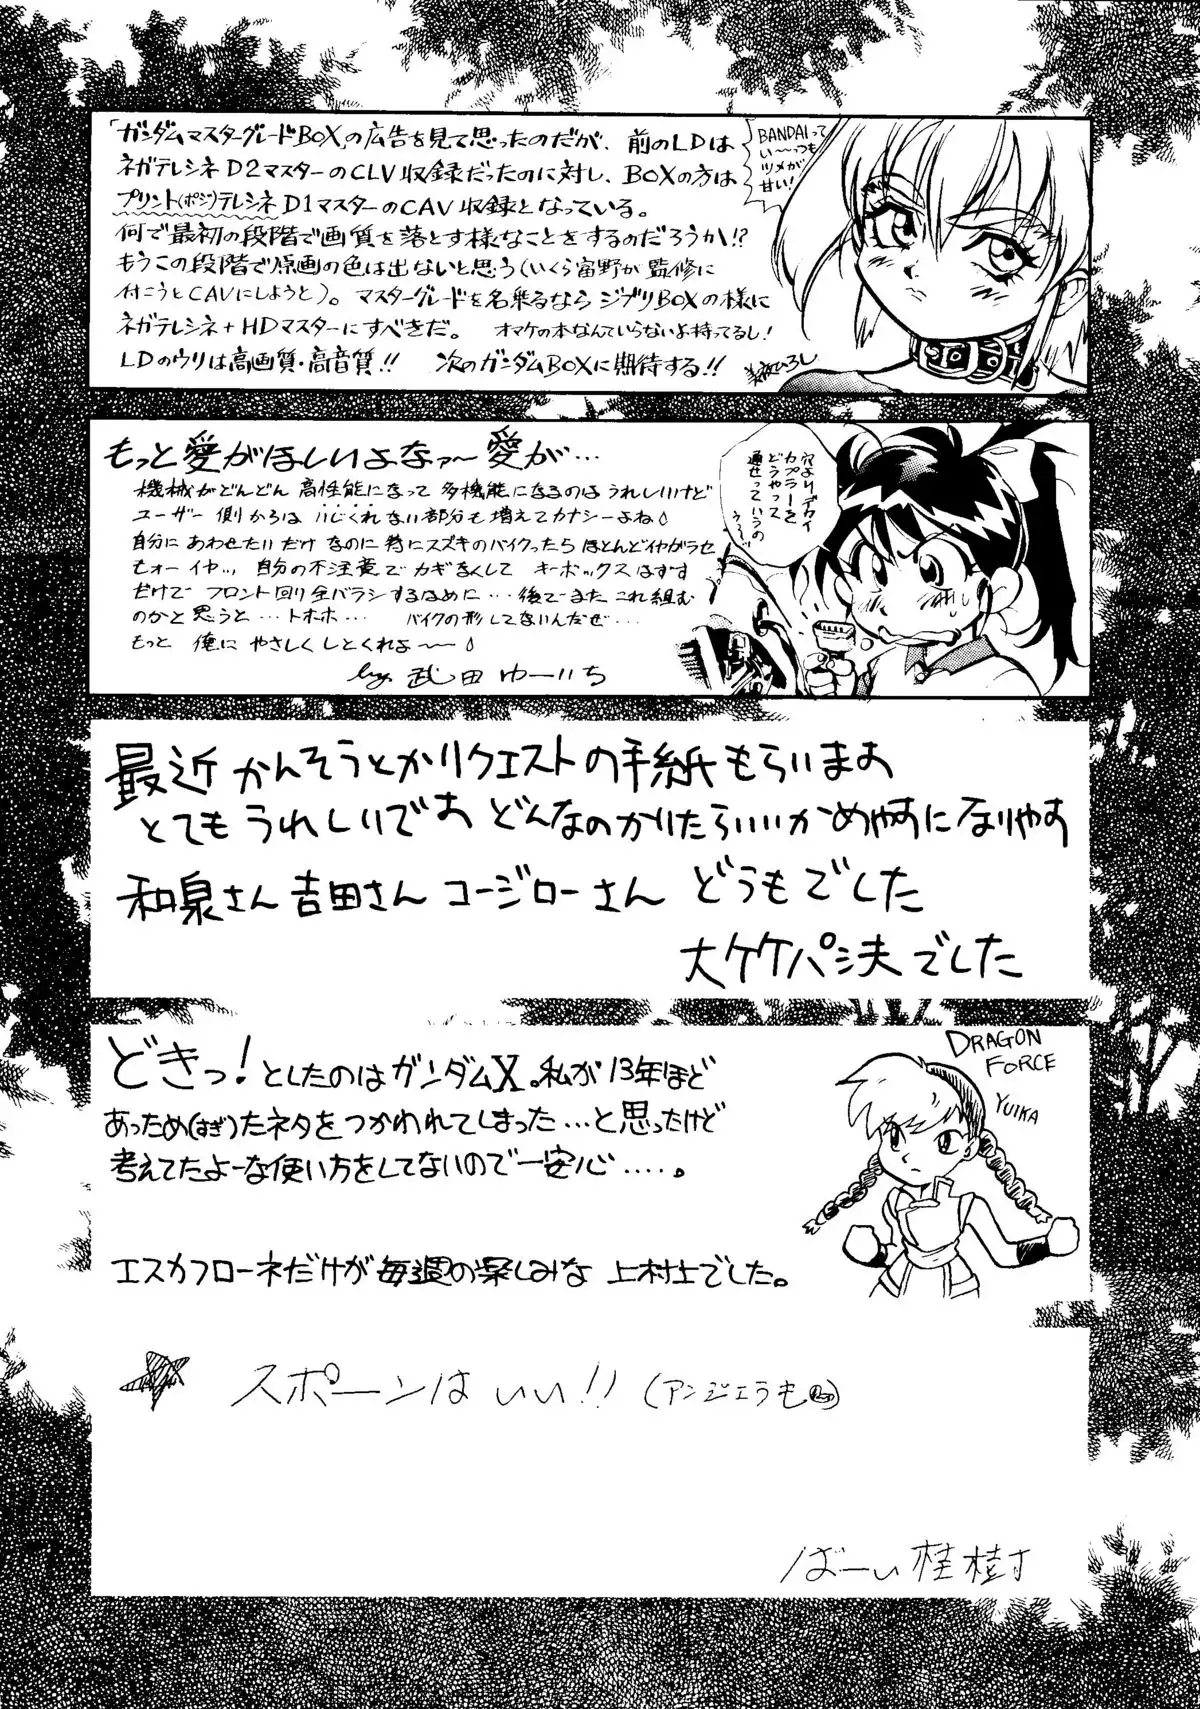 「ガンダムマスターグレードBOX」の広告を見て思ったのだが、前のLDは
ネガテレシネD2マスターのCLV収録だったのに対し、BOXの方は
プリント(ポジ)テレシネD1マスターのCAV収録となっている。
何で最初の段階で画質を落とす様なことをするのだろうか!?
もうこの段階で原画の色は出ないと思う(いくら富野が監修に
付こうとCAVにしようと)。マスターグレードを名乗るならジブリBOXの様に
ネガテレシネ+HDマスターにすべきだ。 オマケの本なんていらないよ持ってるし!
LDのウリは高画質・高音質!! 次のガンダムBOXに期待する!!
BANDAIって
い〜っつも
ツメが
甘い!
もっと愛がほしいよなァ〜愛が…
機械がどんどん高性能になって多機能になるのはうれしいけど
ユーザー側からはいじくれない部分も増えてカナシーよね
自分にあわせたいだけなのに特にスズキのバイクったらほとんどイヤがラセ
もォーイヤ… 自分の不注意でカギなくしてキーボックスはずす
だけでフロント回り全バラシするなめに…後でまたこれ組む
のかと思うと…トホホ… バイクの形してないんだぜ…
もっと俺にやさしくしとくれよ〜〜
by 武田ゆーいち
穴よりデカイ
カプラーを
どうやって
通せっていうの
う〜
最近かんそうとかリクエストの手紙もらいます
とてもうれしいです どんなのかいたらいいかめやすになりやす
和泉さん吉田さんコージローさん どうもでした
大ケケパシ夫でした
どきっ!としたのはガンダムX。私が13年ほど
あっため(すぎ)たネタをつかわれてしまった…と思ったけど
考えてたよーな使い方をしてないので一安心……。
エスカフローネだけが毎週の楽しみな 上村上でした。
DRAGON
FORCE
YUIKA
☆ スポーンはいい!! (アンジェラも)
ばーい桂樹